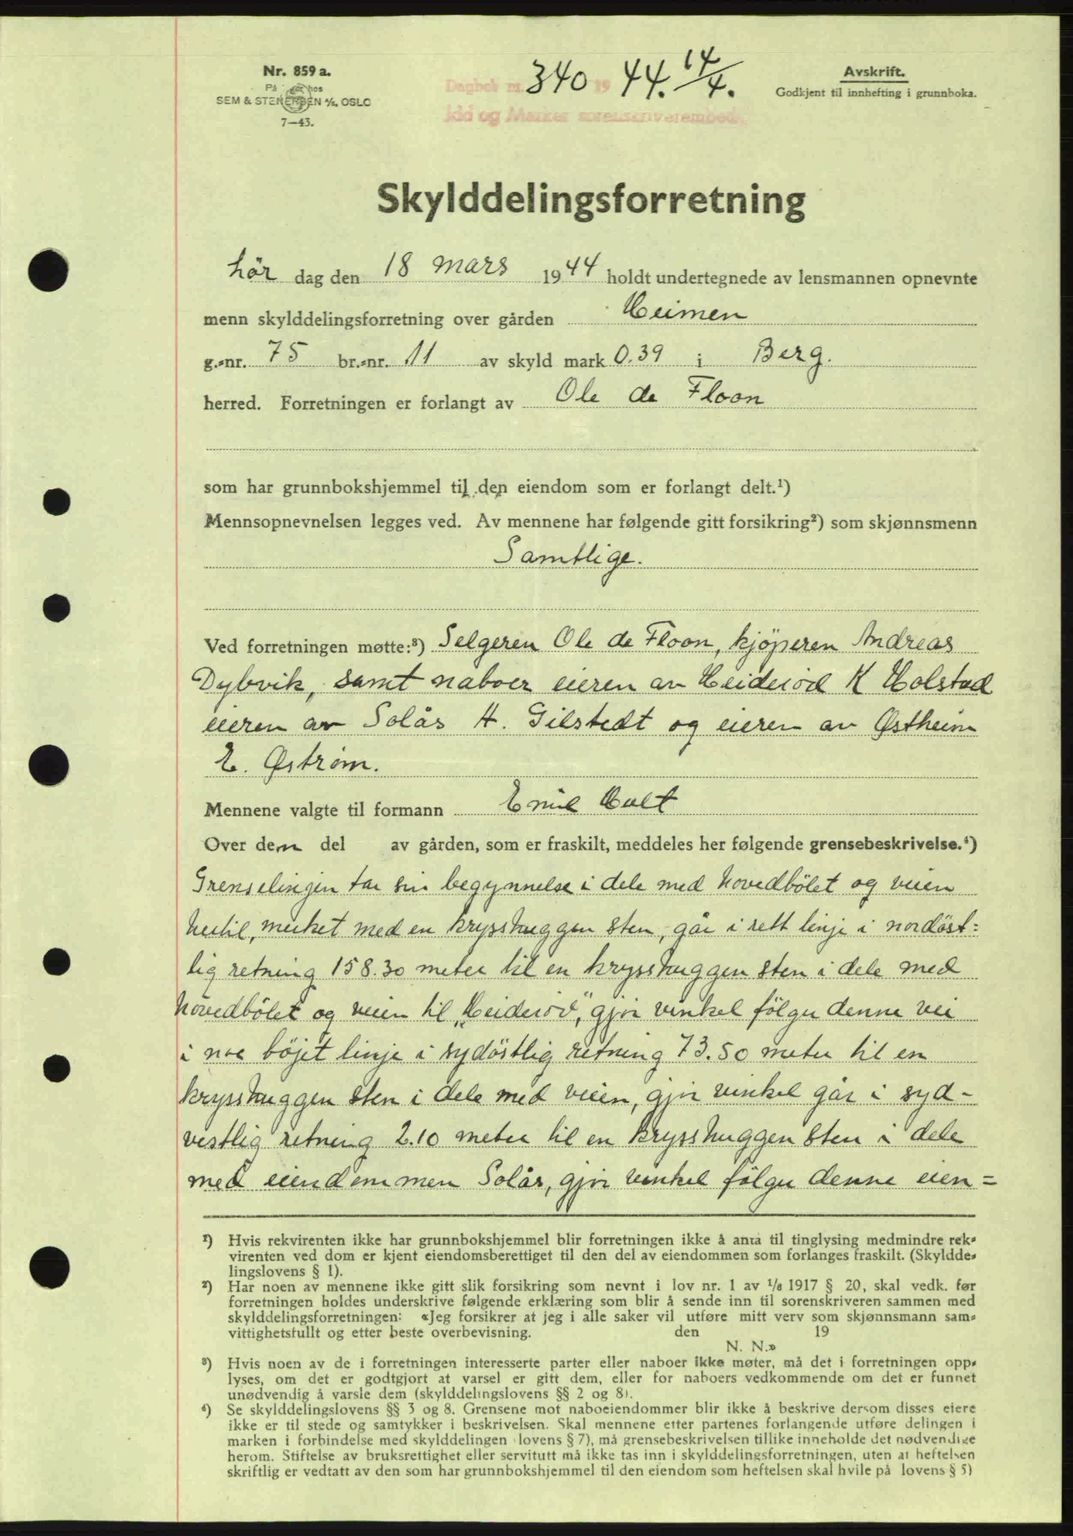 Nr. 859 a.
På lager hos
SEM & STENERSEN A/S, OSLO
7—43.
Dagbok nr. 340 19 44. 14/4.
Idd og Marker sorenskriverembede
Avskrift.
Godkjent til innhefting i grunnboka.
Skylddelingsforretning
Lör dag den 18 mars 1944 holdt undertegnede av lensmannen opnevnte
menn skylddelingsforretning over gården Heimen
g.-nr. 75 br.-nr. 11 av skyld mark 0.39 i Berg.
herred. Forretningen er forlangt av Ole de Floon
som har grunnbokshjemmel til den eiendom som er forlangt delt.¹)
Mennsopnevnelsen legges ved. Av mennene har følgende gitt forsikring²) som skjønnsmenn
Samtlige.
Ved forretningen møtte:³) Selgeren Ole de Floon, kjöperen Andreas
Dybvik, samt naboer eieren av Heideröd K Holstad
eieren av Solås H. Gilstedt og eieren av Østheim
E. Østrøm.
Mennene valgte til formann Emil Holt
Over den del av gården, som er fraskilt, meddeles her følgende grensebeskrivelse.⁴)
Grenselinjen tar sin begynnelse i dele med hovedbölet og veien
hertil, merket med en krysshuggen sten, går i rett linje i nordöst=
lig retning 158.30 meter til en krysshuggen sten i dele med
hovedbölet og veien til „Heideröd", gjör vinkel fölger denne vei
i noe böjet linje i sydöstlig retning 73.50 meter til en
krysshuggen sten i dele med veien, gjör vinkel går i syd-
vestlig retning 2.10 meter til en krysshuggen sten i dele
med eiendommen Solås, gjör vinkel fölger denne eien=
¹) Hvis rekvirenten ikke har grunnbokshjemmel blir forretningen ikke å anta til tinglysing medmindre rek-
virenten ved dom er kjent eiendomsberettiget til den del av eiendommen som forlanges fraskilt. (Skyldde-
lingslovens § 1).
²) Har noen av mennene ikke gitt slik forsikring som nevnt i lov nr. 1 av ¹/₆ 1917 § 20, skal vedk. før
forretningen holdes underskrive følgende erklæring som blir å sende inn til sorenskriveren sammen med
skylddelingsforretningen: «Jeg forsikrer at jeg i alle saker vil utføre mitt verv som skjønnsmann sam-
vittighetsfullt og etter beste overbevisning. den 19
N. N.»
³) Hvis noen av de i forretningen interesserte parter eller naboer ikke møter, må det i forretningen opp-
lyses, om det er godtgjort at varsel er gitt dem, eller for naboers vedkommende om det er funnet
unødvendig å varsle dem (skylddelingslovens §§ 2 og 8).
⁴) Se skylddelingslovens §§ 3 og 8. Grensene mot naboeiendommer blir ikke å beskrive dersom disses eiere
ikke er til stede og samtykker i beskrivelsen. Skal mennene etter partenes forlangende utføre delingen i
marken i forbindelse med skylddelingen (lovens § 7), må grensebeskrivelsen tillike inneholde det nødvendige
herom. Stiftelse av bruksrettighet eller servitutt må ikke tas inn i skylddelingsforretningen, uten at heftelsen
skriftlig er vedtatt av den som har grunnbokshjemmel til den eiendom som heftelsen skal hvile på (lovens § 5)